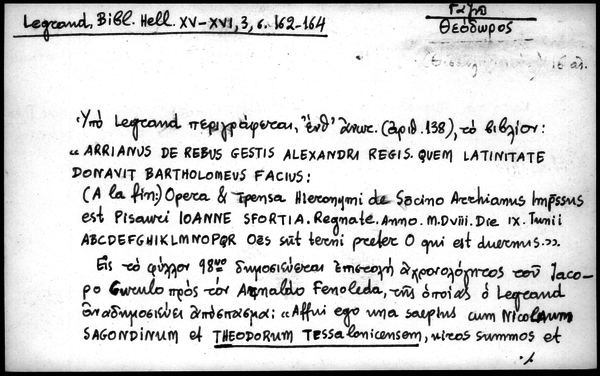 Legrand, Bibl. Hell. XV-XVI, 3, σ. 162-164
Γαζῆ
Θεόδωρος
16 αἰ.
Ὑπό Legrand περιγράφεται, ἔνθ' ἄνωτ. (ἀριθ. 138), τό βιβλίον:
« ARRIANUS DE REBUS GESTIS ALEXANDRI REGIS. QUEM LATINITATE
DONAVIT BARTHOLOMEUS FACIUS:
(A la fin:) Opera & Ipensa Hieronymi de Sōcino Archianus Imp̄ssus
est Pisauri IOANNE SFORTIA. Regnate. Anno. M.Dviii. Die IX. Iunii
ABCDEFGHIKLMNOPQR Oēs sūt terni preter O qui est duernus.».
Εἰς τό φύλλον 98υο δημοσιεύεται ἐπιστολή ἀχρονολόγητος τοῦ Iaco-
po Curulo πρός τόν Arnaldo Fenoleda, τῆς ὁποίας ὁ Legrand
ἀναδημοσιεύει ἀπόσπασμα: «Affui ego una saepius cum Nicolaum
SAGONDINUM et THEODORUM Tessalonicensem, viros summos et
./.